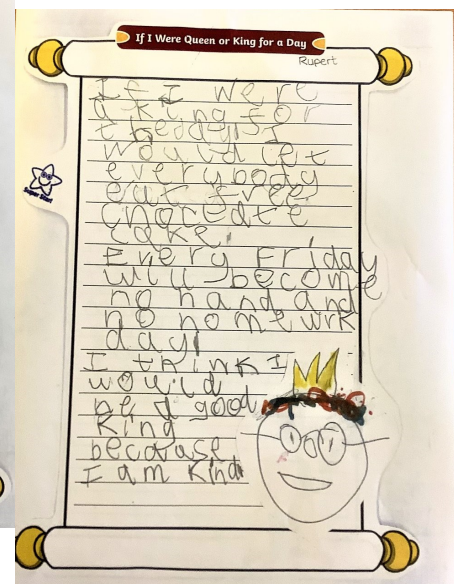 If I Were Queen or King for a Day
Rupert
If I were
a king for
the day I
would let
everybody
eat free
chocolate
cake.
Every Friday
will become
no hand and
no homewrk
day
I think I
would
be a good
King
becauase
I am Kind
Super Star!